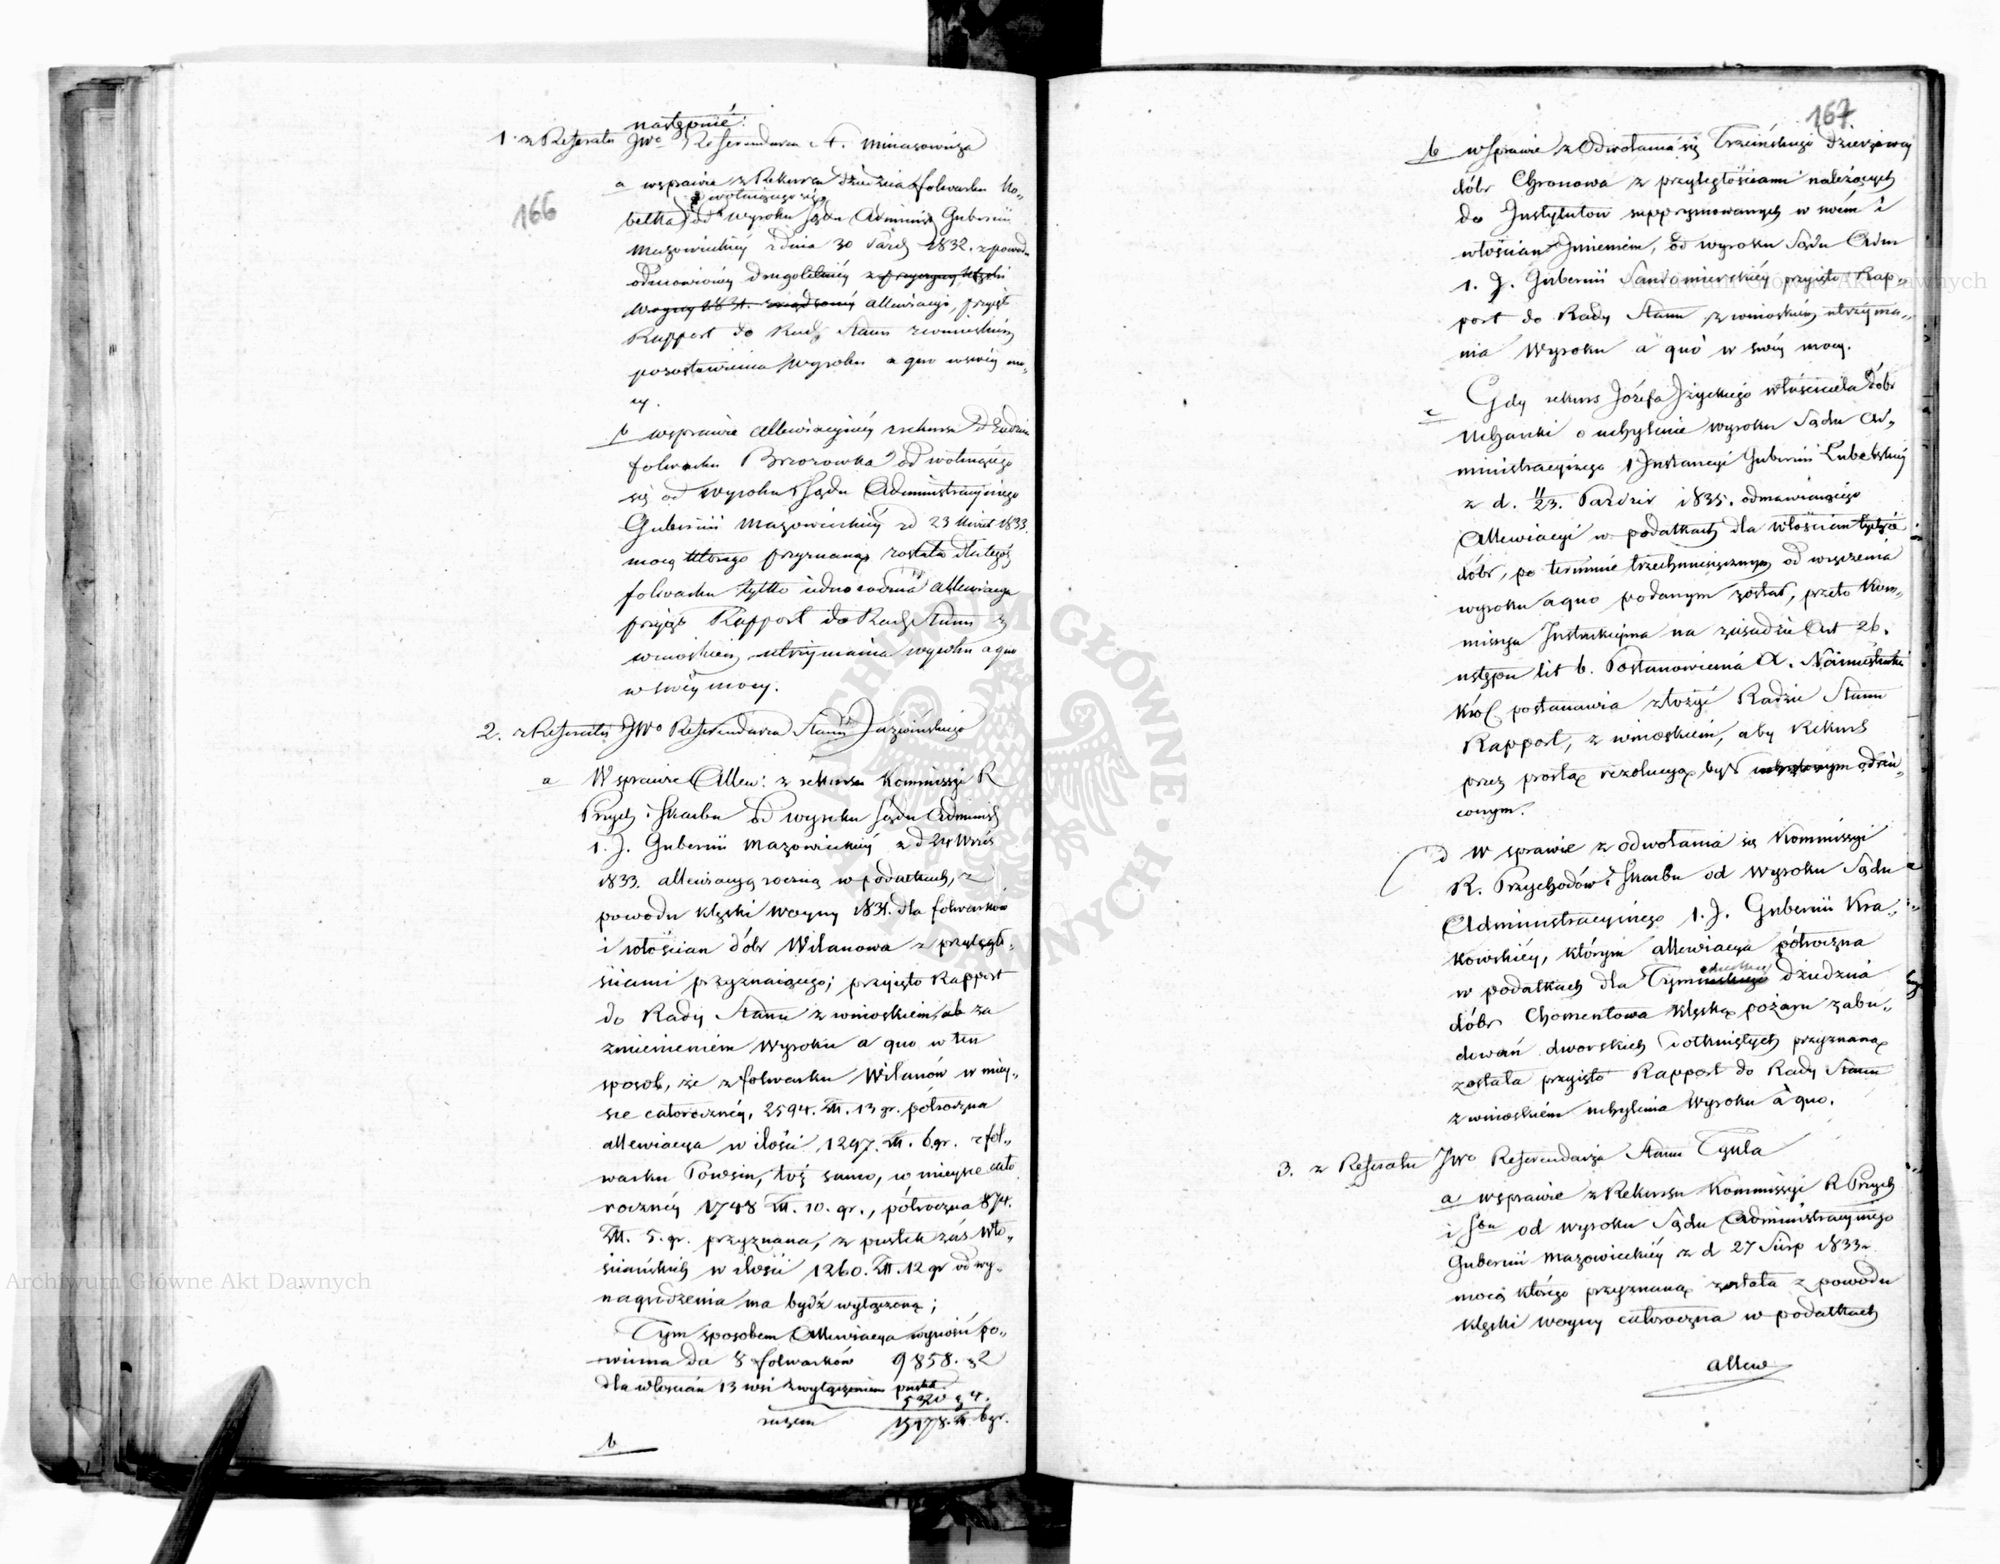 następnie:
1. z Referatu JWo Referendarza A. Minasowicza
166
a w sprawie z Rekursu dziedzica folwarku Ko-
odwołującego się
bełka od wyroku Sądu Adminis Gubernii
Mazowieckiéy z dnia 30 Paźd 1832. z powodu
odmówionéy drugoletniéy z przyczyny klęski
woyny 1831. allewiacyi, przyięto
Rapport do Rady Stanu z wnioskiem
pozostawienia wyroku a quo w swéy mo-
cy.
b w sprawie allewiacyinéy z rekursu Dziedzica
folwarku Brzozowka odwołuiącego
się od wyroku Sądu Administracyinego
Gubernii Mazowieckiéy z d 23 Kwiet 1833
mocą którego przyznaną została dla tegoż
folwarku tylko iednoroczna allewiacya
przyięto Rapport do Rady Stanu z
wnioskiem utrzymania wyroku a quo
w swéy mocy.
2. z Referatu JWo Referendarza Stanu Jaźwińskiego
a W sprawie Allew: z rekursu Kommissyi R
Przych i Skarbu od wyroku Sądu Adminis
1. J. Gubernii Mazowieckiéy z d 24 Wrześ
1833. allewiacyą roczną w podatkach, z
powodu klęski woyny 1831. dla folwarków
i włościan dóbr Wilanowa z przyległo-
ściami przyznaiącego; przyięto Rapport
do Rady Stanu z wnioskiem, ab za
zmienieniem Wyroku a quo w ten
sposob, że z folwarku Wilanów w miey-
sce całorocznéy, 2594. Zł. 13 gr. półroczna
allewiacya w ilości 1297. Zł. 6 gr. z fol-
warku Powsin, toż samo, w mieysce cało
rocznéy 1748 Zł. 10. gr., półroczna 874.
Zł. 5. gr. przyznana, z pustek zaś wło-
ściańskich w ilości 1260. Zł. 12 gr od wy-
nagrodzenia ma bydź wyłączoną;
Tym sposobem Allewiacya wynosić po-
winna dla 8 folwarków 9858. 2
dla włościan 13 wsi z wyłączeniem pustek
5320 4.
razem 15178. Zł. 6 gr.
b
167
b w sprawie z Odwołania się Trzcińskiego dzierżawcy
dóbr Chronowa z przyległościami należących
do Instytutow supprymowanych w swém i
włościan Imieniem, od wyroku Sądu Adm
1. J. Gubernii Sandomierskiéy przyięto Rap-
port do Rady Stanu z wnioskiem utrzyma-
nia Wyroku a quo w swéy mocy.
c Gdy rekurs Józefa Jżyckiego właściciela dóbr
Uchanki o uchylenie wyroku Sądu Ad-
ministracyinego 1 Instancyi Gubernii Lubelskiéy
z d. 11/23. Paździer 1835. odmawiaiącego
Allewiacyi w podatkach dla włościan tychże
dóbr, po terminie trzechmiesięcznym od wręczenia
wyroku a quo podanym został, przeto Kom-
missya Instrukcyina na zasadzie Art 26.
ustępu lit b. Postanowienia X. Namiestnika
Król postanawia złożyć Radzie Stanu
Rapport, z wnioskiem, aby Rekurs
przez prostą rezolucyą był odrzu-
conym.
d W sprawie z odwołania się Kommissyi
R. Przychodów i Skarbu od Wyroku Sądu
Administracyinego 1. J. Gubernii Kra-
kowskiéy, którym allewiacya półroczna
w podatkach dla dziedzica
dóbr Chomentowa klęską pożaru zabu-
dowań dworskich dotkniętych przyznaną
została przyięto Rapport do Rady Stanu
z wnioskiem uchylenia Wyroku a quo.
3. z Referatu JWo Referendarza Stanu Cyula
a w sprawie z Rekursu Kommissyi R Przych
i Sbu od wyroku Sądu Administracyinego
Gubernii Mazowieckiéy z d 27 Sierp 1833
mocą którego przyznaną została z powodu
klęski woyny całoroczna w podatkach
allew
Archiwum Główne Akt Dawnych
Archiwum Główne Akt Dawnych
ARCHIWUM GŁÓWNE AKT DAWNYCH